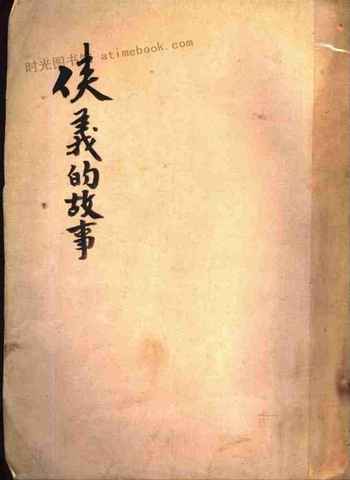 时光图书 atimebook.com
侠義的故事